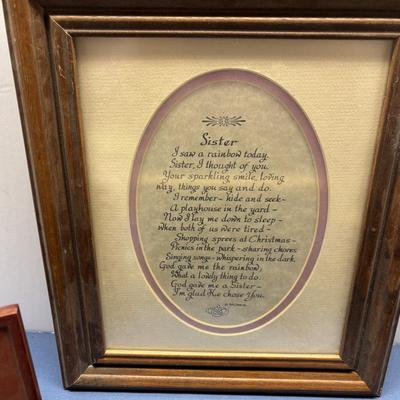 Sister
I saw a rainbow today.
Sister, I thought of you.
Your sparkling smile, loving
way, things you say and do.
I remember - hide and seek -
A playhouse in the yard -
Now I lay me down to sleep -
when both of us were tired -
Shopping sprees at Christmas -
Picnics in the park - sharing chores.
Singing songs - whispering in the dark.
God gave me the rainbow,
What a lovely thing to do.
God gave me a Sister -
I'm glad He chose You.